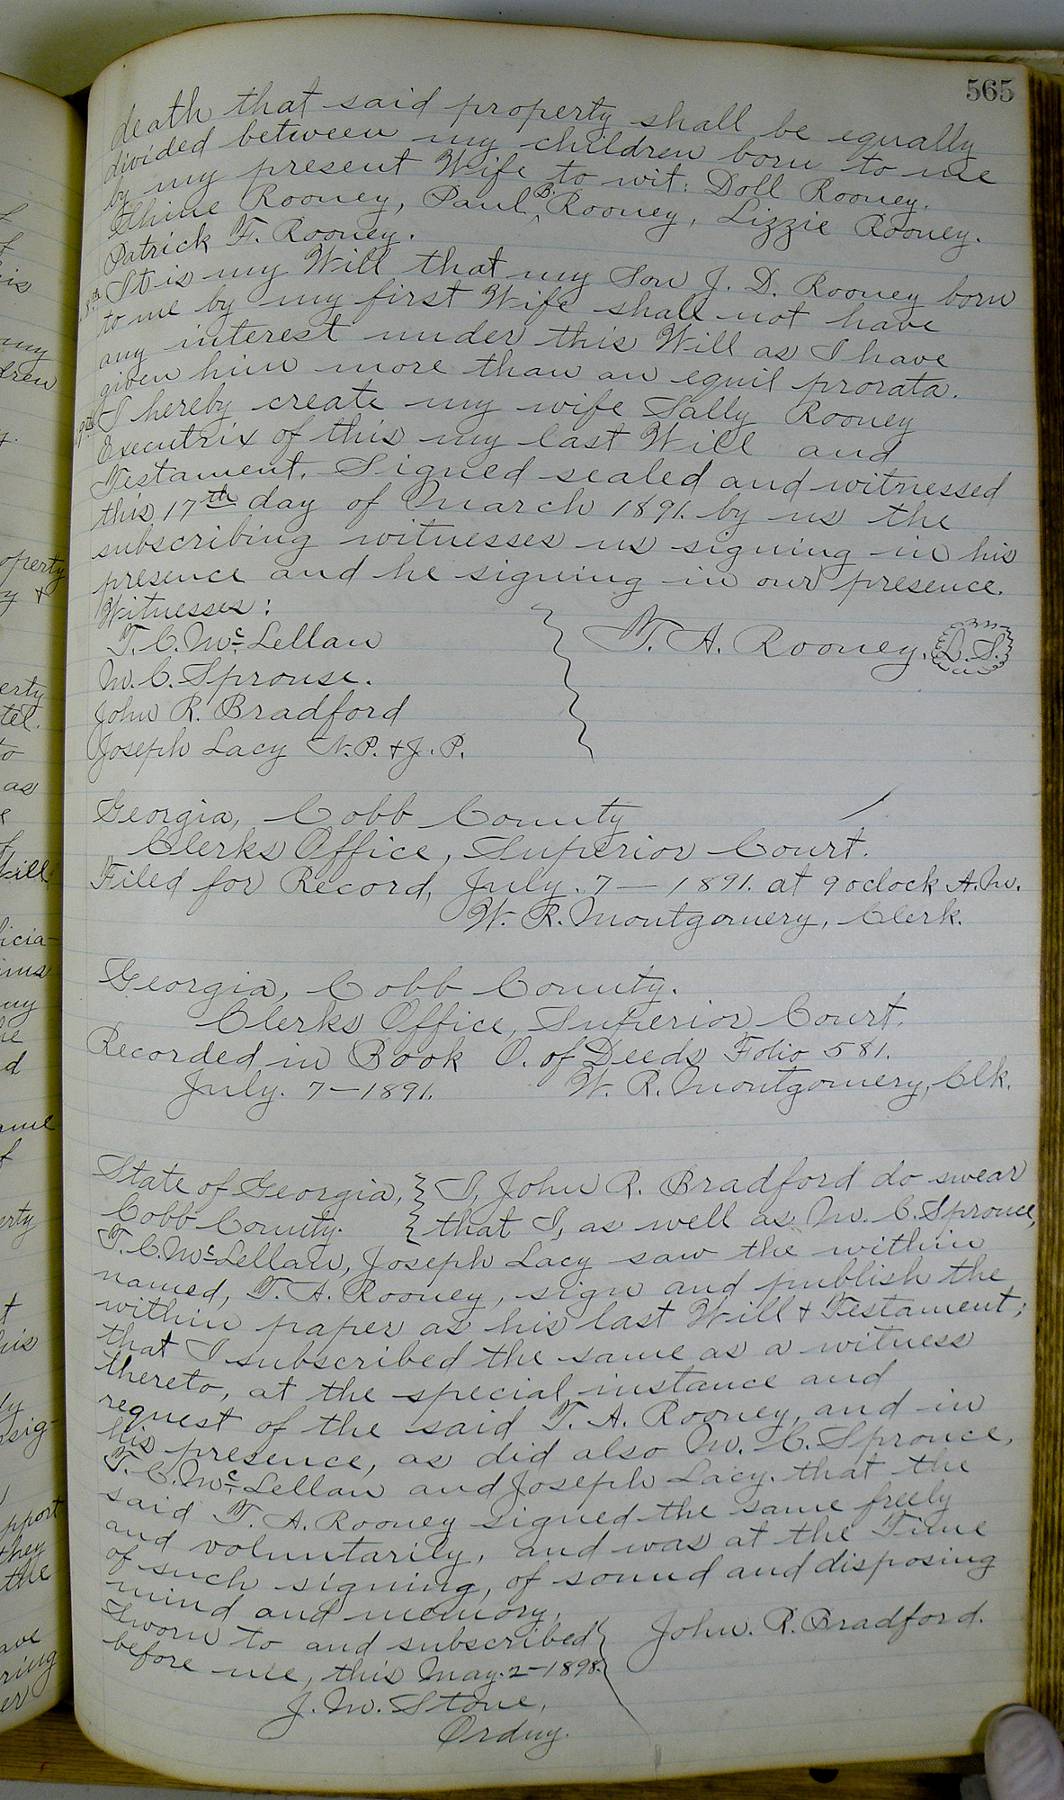 565
death that said property shall be equally
divided between my children born to me
by my present Wife to wit: Doll Rooney.
Shine Rooney, Paul B. Rooney, Lizzie Rooney.
Patrick F. Rooney.
8th It is my Will that my Son J. D. Rooney born
to me by my first Wife shall not have
any interest under this Will as I have
given him more than an equil prorata.
9th I hereby create my wife Sally Rooney
Executrix of this my last Will and
Testament. Signed sealed and witnessed
this 17th day of March 1891. by us the
subscribing witnesses us signing in his
presence and he signing in our presence.
Witnesses:
T. C. Mc Lellan
M. C. Sprouse.
John R. Bradford
Joseph Lacy N.P. & J. P.
T. A. Rooney. L.S.
Georgia, Cobb County
Clerks Office, Superior Court.
Filed for Record, July. 7 — 1891. at 9 oclock A.M.
W. R. Montgomery, Clerk.
Georgia, Cobb County.
Clerks Office, Superior Court.
Recorded in Book O. of Deeds Folio 581.
July. 7 – 1891. W. R. Montgomery, Clk.
State of Georgia, I, John R. Bradford do swear
Cobb County. that I, as well as M. C. Sprouce,
T. C. Mc Lellan, Joseph Lacy saw the within
named, T. A. Rooney, sign and publish the
within paper as his last Will & Testament;
that I subscribed the same as a witness
thereto, at the special instance and
request of the said T. A. Rooney, and in
his presence, as did also M. C. Sprouce,
T. C. Mc Lellan and Joseph Lacy. that the
said T. A. Rooney signed the same freely
and voluntarily, and was at the Time
of such signing, of sound and disposing
mind and memory.
Sworn to and subscribed John. R. Bradford.
before me, this May. 2 – 1898.
J. M. Stone,
Ordny.